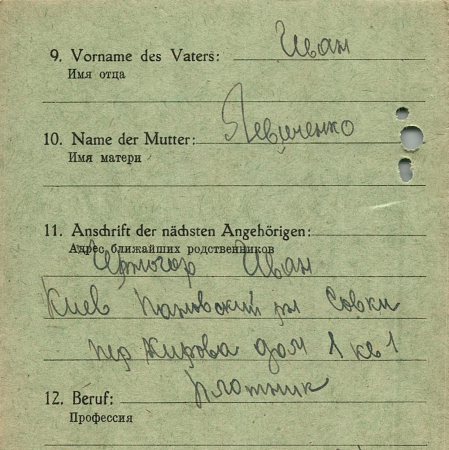 9. Vorname des Vaters: Иван
Имя отца
10. Name der Mutter: Левченко
Имя матери
11. Anschrift der nächsten Angehörigen:
Адрес ближайших родственников
Иван
Киев рн Совки
пер Кирова дом 1 кв 1
12. Beruf: плотник
Профессия